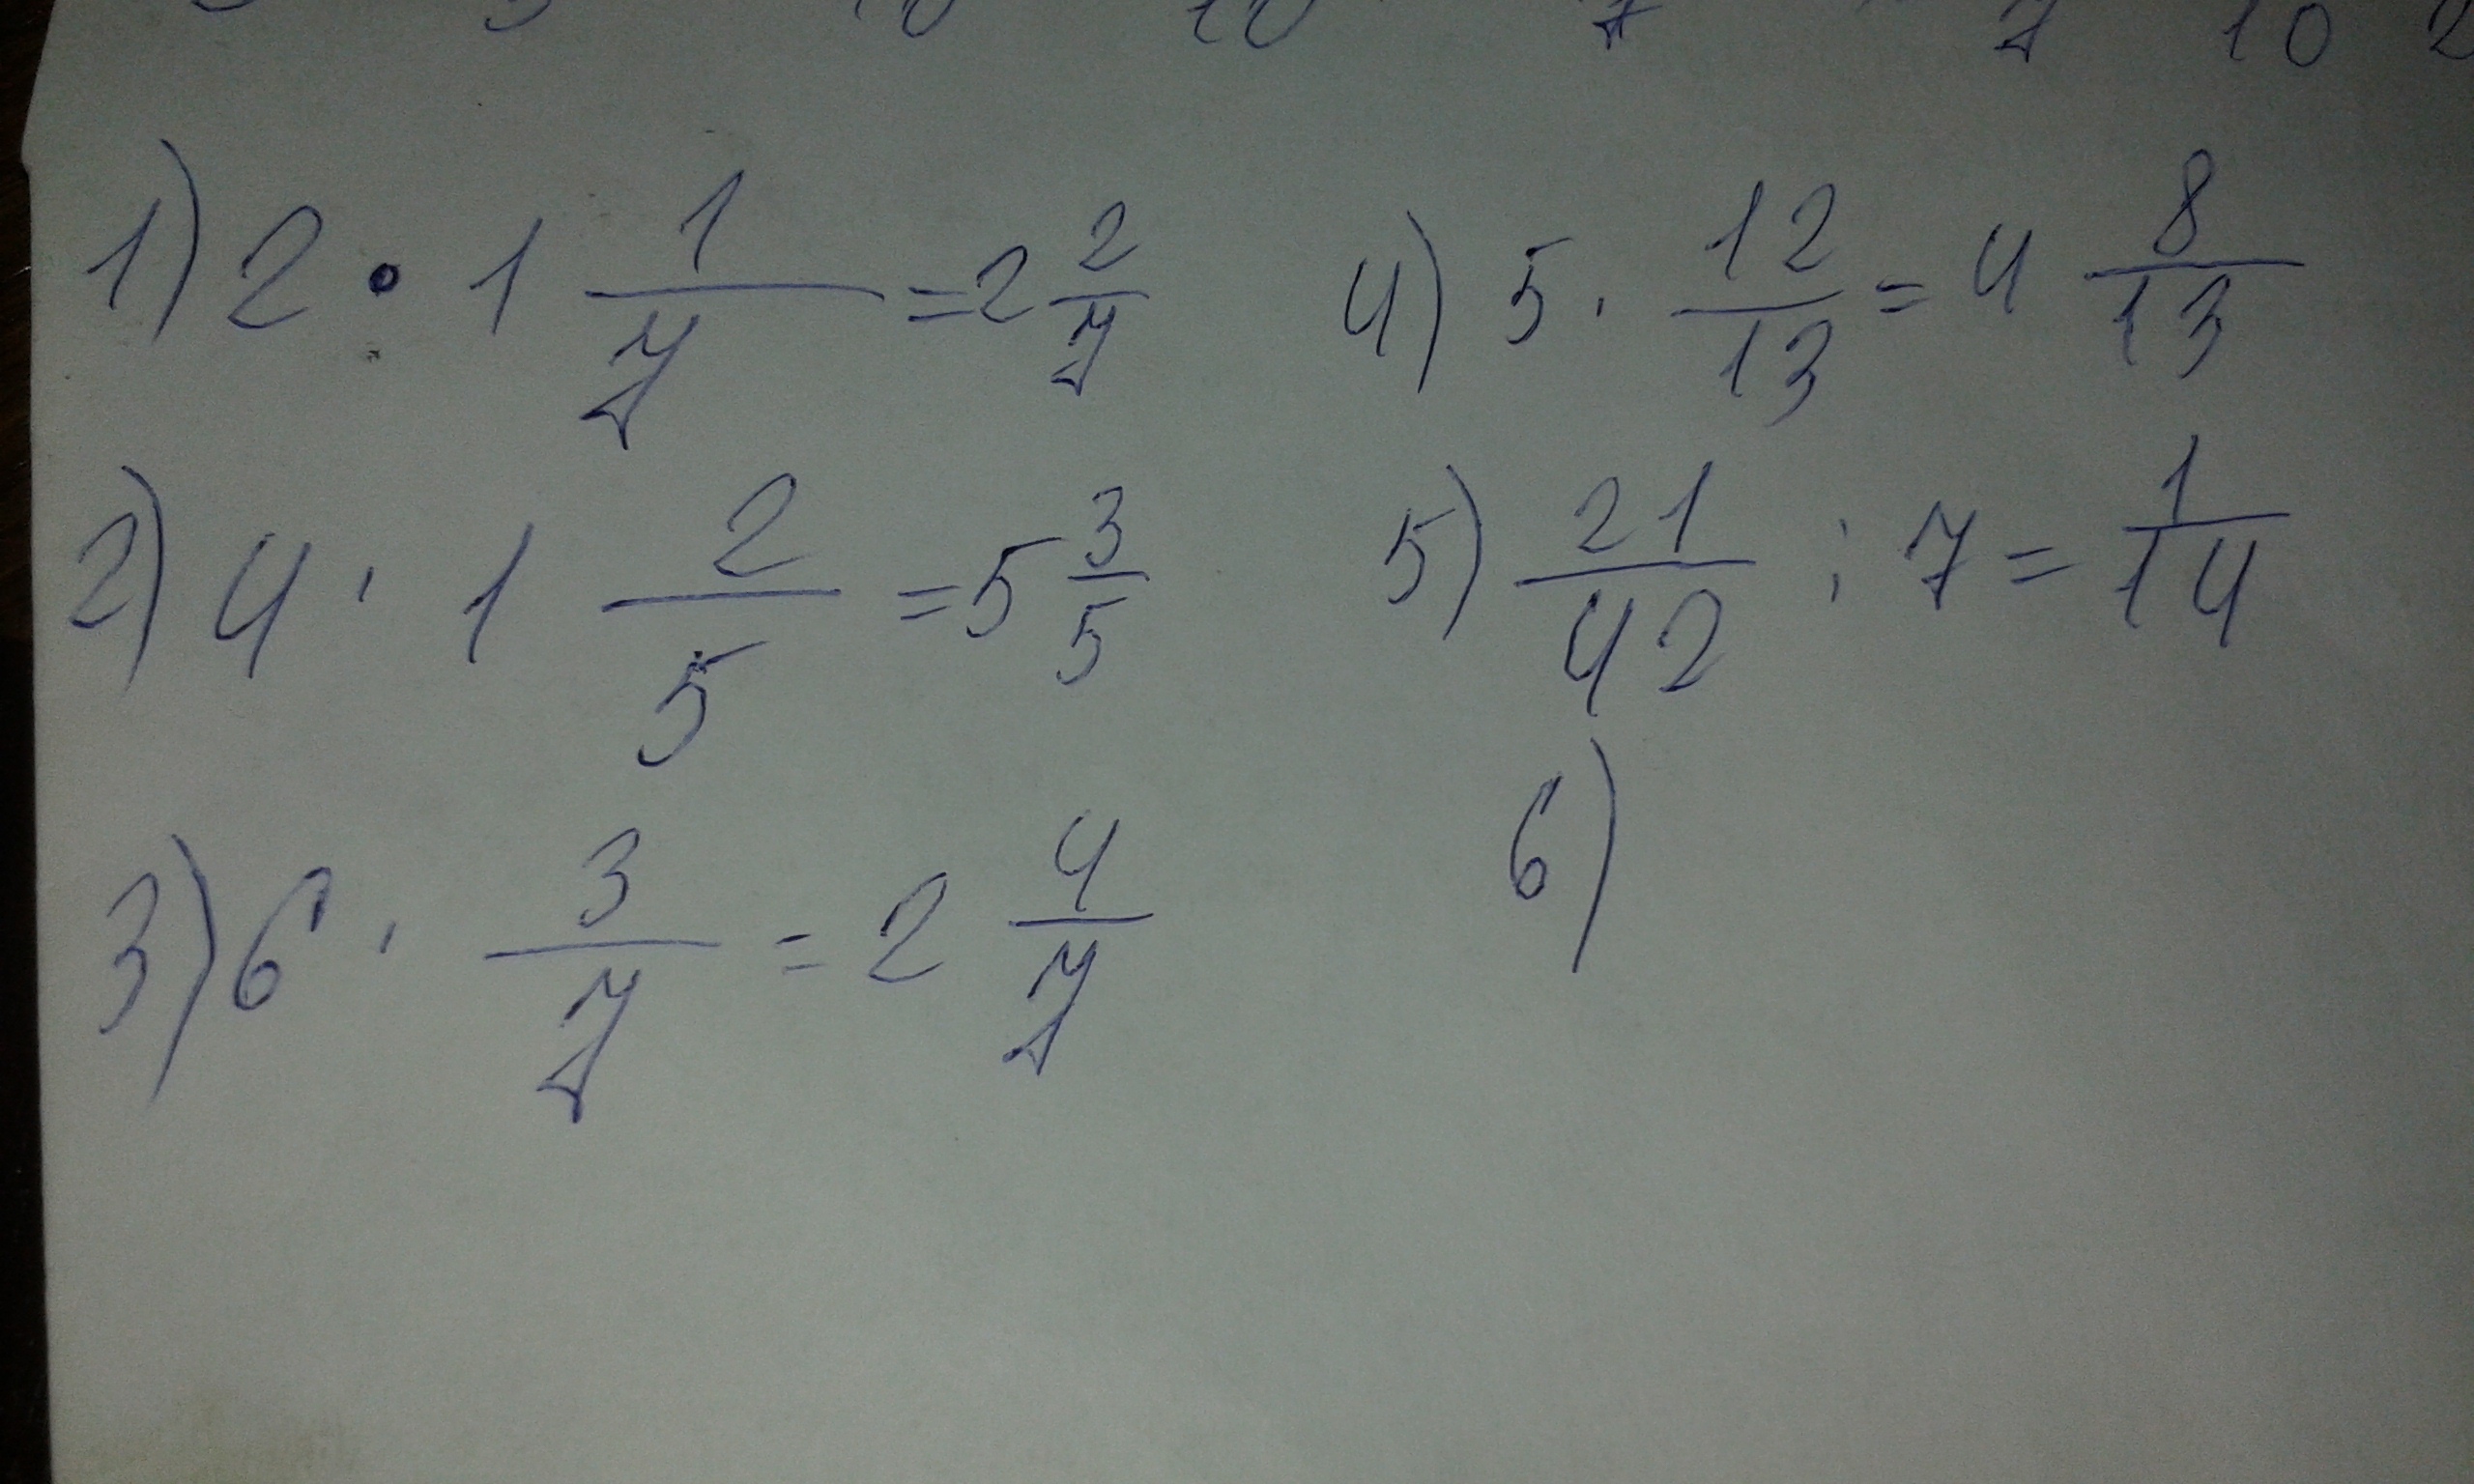 7 10
1) 2 • 1 1/7 = 2 2/7
2) 4 · 1 2/5 = 5 3/5
3) 6 · 3/7 = 2 4/7
4) 5 · 12/13 = 4 8/13
5) 21/42 : 7 = 1/14
6)